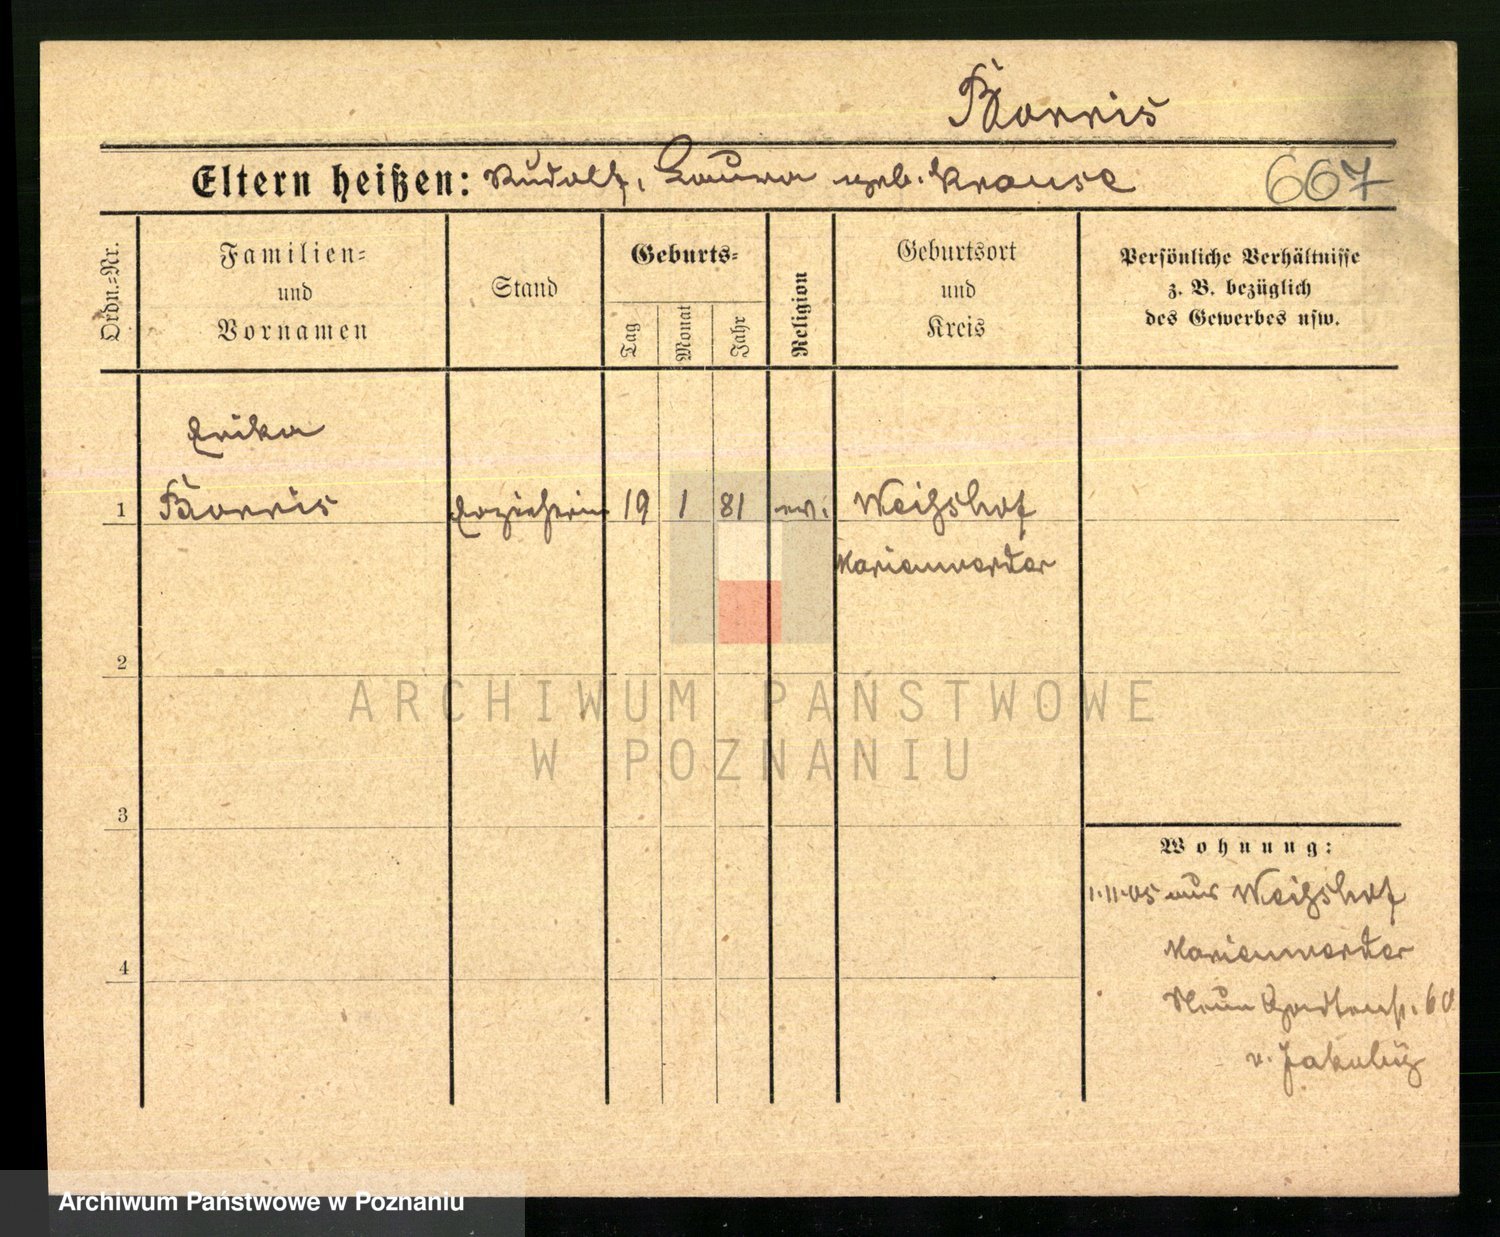 Borris
Eltern heißen: Rudolf, Laura geb. Krause 667
Ordn.-Nr.
Familien-
und
Vornamen
Stand
Geburts-
Tag
Monat
Jahr
Religion
Geburtsort
und
Kreis
Persönliche Verhältnisse
z. B. bezüglich
des Gewerbes usw.
Erika
1 Borris Erzieherin 19 1 81 ev. Weißhof
Marienwerder
2
3
4
Wohnung:
1.11.05 aus Weißhof
Marienwerder
Neue Gartenstr. 60
v.
ARCHIWUM PAŃSTWOWE
W POZNANIU
Archiwum Państwowe w Poznaniu